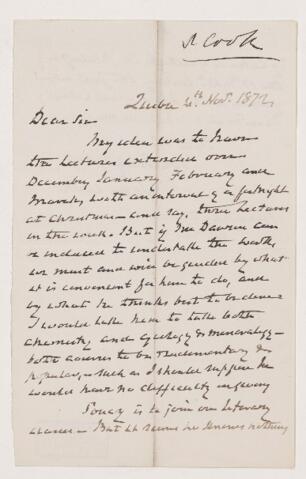 J Cook
Quebec 4th Nov. 1872
Dear Sir
My idea was to have
the Lectures extended over
December January February and
March, with an interval of a fortnight
at Christmas - and say, three Lectures
in the week. But if Mr Dawson can
be induced to undertake the work,
we must and will be guided by what
it is convenient for him to do, and
by what he thinks best to be done
I would like him to take both
Chemistry and Geology & Mineralogy -
both courses to be rudimentary &
popular, - such as I should suppose he
would have no difficulty in giving
is to join our literary
- But it seems he knows nothing